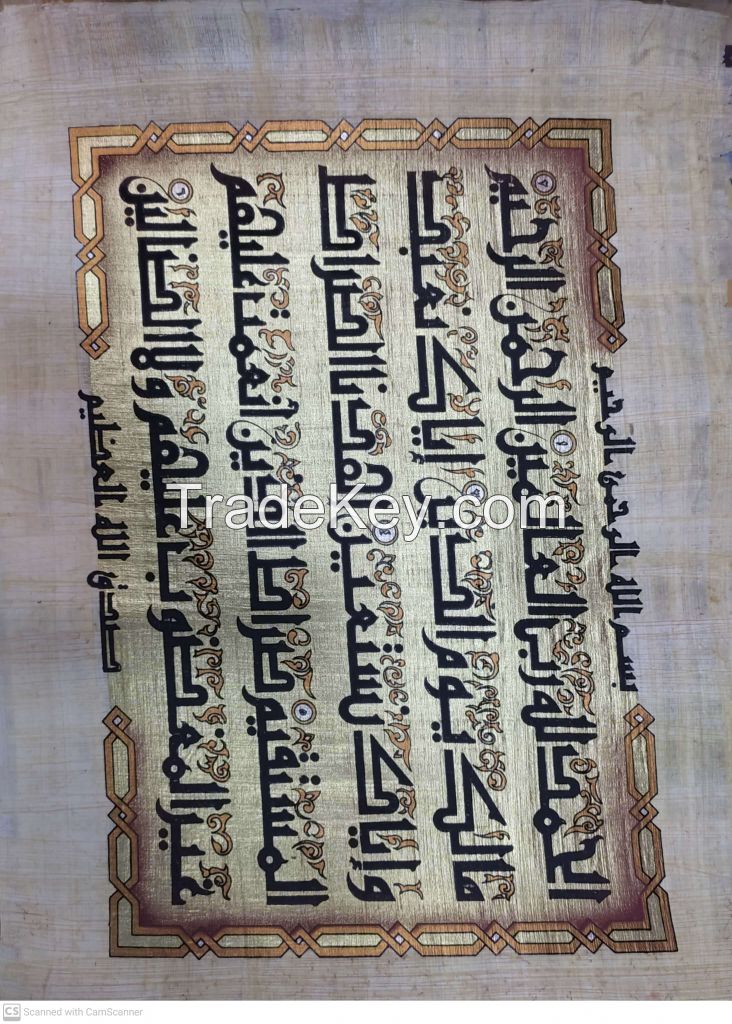 بسم الله الرحمن الرحيم
الحمد لله رب العالمين ١ الرحمن الرحيم ٢
مالك يوم الدين ٣ إياك نعبد
وإياك نستعين ٤ اهدنا الصراط
المستقيم ٥ صراط الذين أنعمت عليهم
غير المغضوب عليهم ولا الضالين ٦
صدق الله العظيم
TradeKey.com
CS Scanned with CamScanner